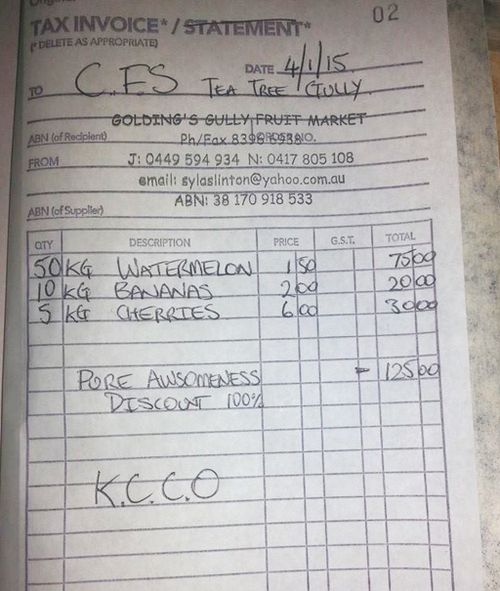 02
TAX INVOICE* / STATEMENT*
(* DELETE AS APPROPRIATE)
DATE 4/1/15
TO C.F.S TEA TREE GULLY
GOLDING'S GULLY FRUIT MARKET
ABN (of Recipient) Ph/Fax 8396 6938
FROM J: 0449 594 934 N: 0417 805 108
email: sylaslinton@yahoo.com.au
ABN (of Supplier) ABN: 38 170 918 533
QTY DESCRIPTION PRICE G.S.T. TOTAL
50 KG WATERMELON 1 50 75 00
10 KG BANANAS 2 00 20 00
5 KG CHERRIES 6 00 30 00
PURE AWSOMENESS - 125 00
DISCOUNT 100%
K.C.C.O